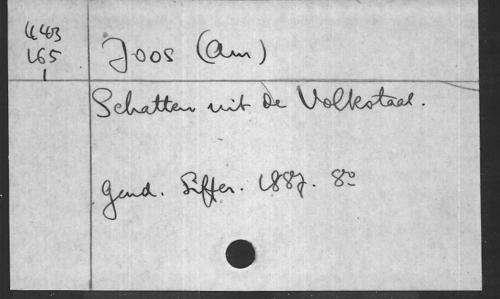 443
165
1
Joos (Am)
Schatten uit de Volkstaal.
Gend. Siffer. 1887. 8º